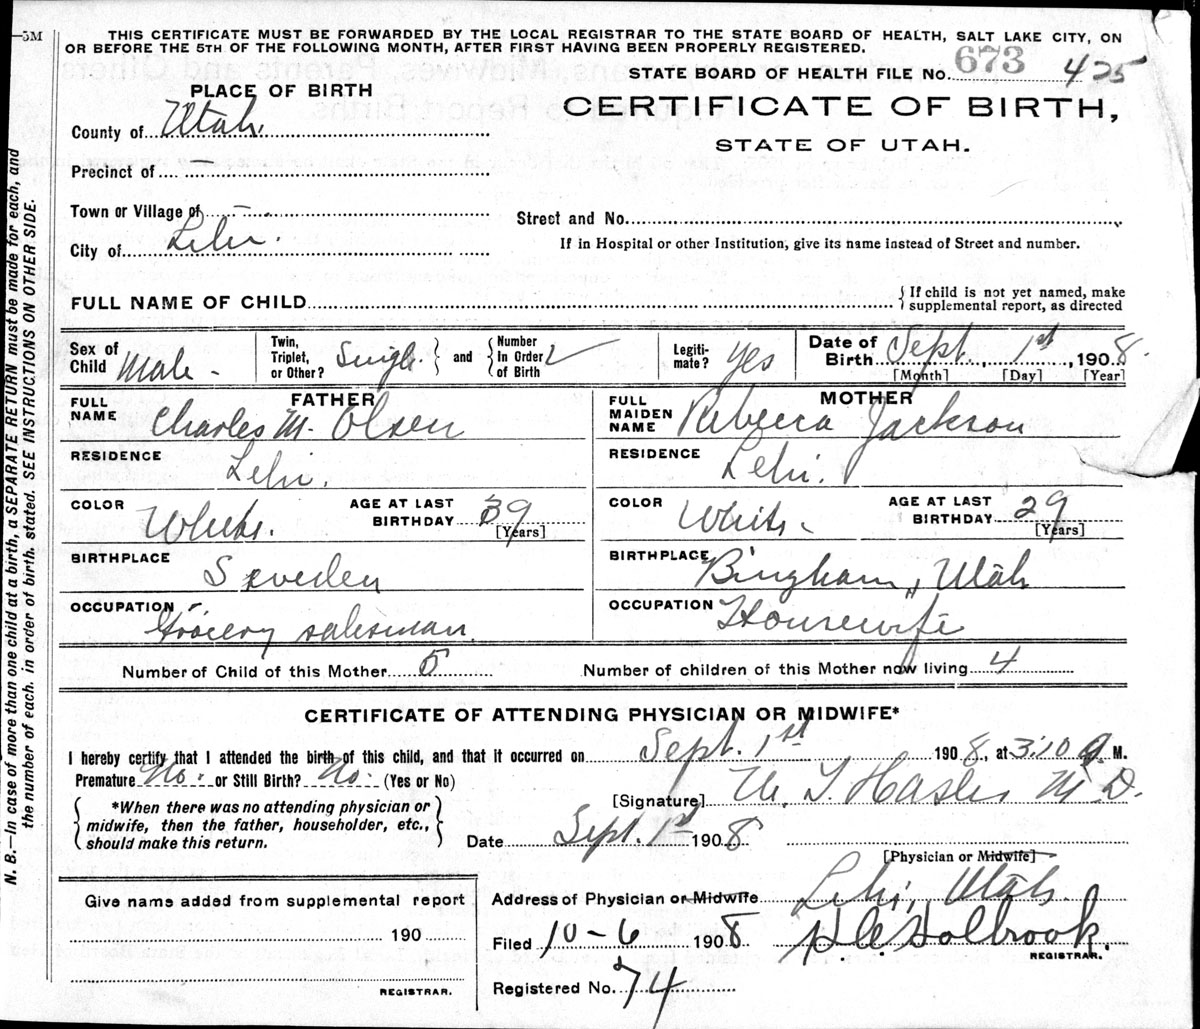 5M
THIS CERTIFICATE MUST BE FORWARDED BY THE LOCAL REGISTRAR TO THE STATE BOARD OF HEALTH, SALT LAKE CITY, ON
OR BEFORE THE 5TH OF THE FOLLOWING MONTH, AFTER FIRST HAVING BEEN PROPERLY REGISTERED.
STATE BOARD OF HEALTH FILE No. 673 425
PLACE OF BIRTH
CERTIFICATE OF BIRTH,
STATE OF UTAH.
County of Utah.
Precinct of
Town or Village of —
Street and No.
City of Lehi.
If in Hospital or other Institution, give its name instead of Street and number.
FULL NAME OF CHILD
{If child is not yet named, make
supplemental report, as directed
Sex of Child Male - Twin, Triplet, or Other? Single } and { Number In Order of Birth Legitimate? Yes Date of Birth Sept. 1st, 1908.
[Month] [Day] [Year]
FATHER MOTHER
FULL NAME Charles M. Olsen FULL MAIDEN NAME Rebecca Jackson
RESIDENCE Lehi. RESIDENCE Lehi.
COLOR White. AGE AT LAST BIRTHDAY 39 [Years] COLOR White AGE AT LAST BIRTHDAY 29 [Years]
BIRTHPLACE Sweden BIRTHPLACE Bingham, Utah
OCCUPATION Grocery salesman. OCCUPATION Housewife
Number of Child of this Mother 5 Number of children of this Mother now living 4
CERTIFICATE OF ATTENDING PHYSICIAN OR MIDWIFE*
I hereby certify that I attended the birth of this child, and that it occurred on Sept. 1st 1908., at 3:10 a. M.
Premature No. or Still Birth? No. (Yes or No)
[Signature] Hasler M.D.
*When there was no attending physician or
midwife, then the father, householder, etc.,
should make this return.
Date Sept. 1st 1908
[Physician or Midwife]
Give name added from supplemental report
190
REGISTRAR.
Address of Physician or Midwife Lehi, Utah.
Filed 10-6 1908 H.C. Holbrook.
REGISTRAR.
Registered No. 74
N. B.—In case of more than one child at a birth, a SEPARATE RETURN must be made for each, and
the number of each, in order of birth, stated. SEE INSTRUCTIONS ON OTHER SIDE.